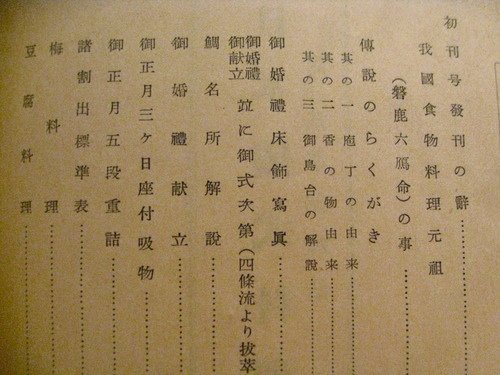 初刊号發刊の辭
我國食物料理元祖
(磐鹿六鴈命)の事
傳説のらくがき
其の一 庖丁の由来
其の二 香の物由来
其の三 御島台の解説
御婚禮床飾寫眞
御婚禮
御献立 竝に御式次第(四條流より拔萃
鯛名所解説
御婚禮献立
御正月三ヶ日座付吸物
御正月五段重詰
諸割出標準表
梅料理
豆腐料理